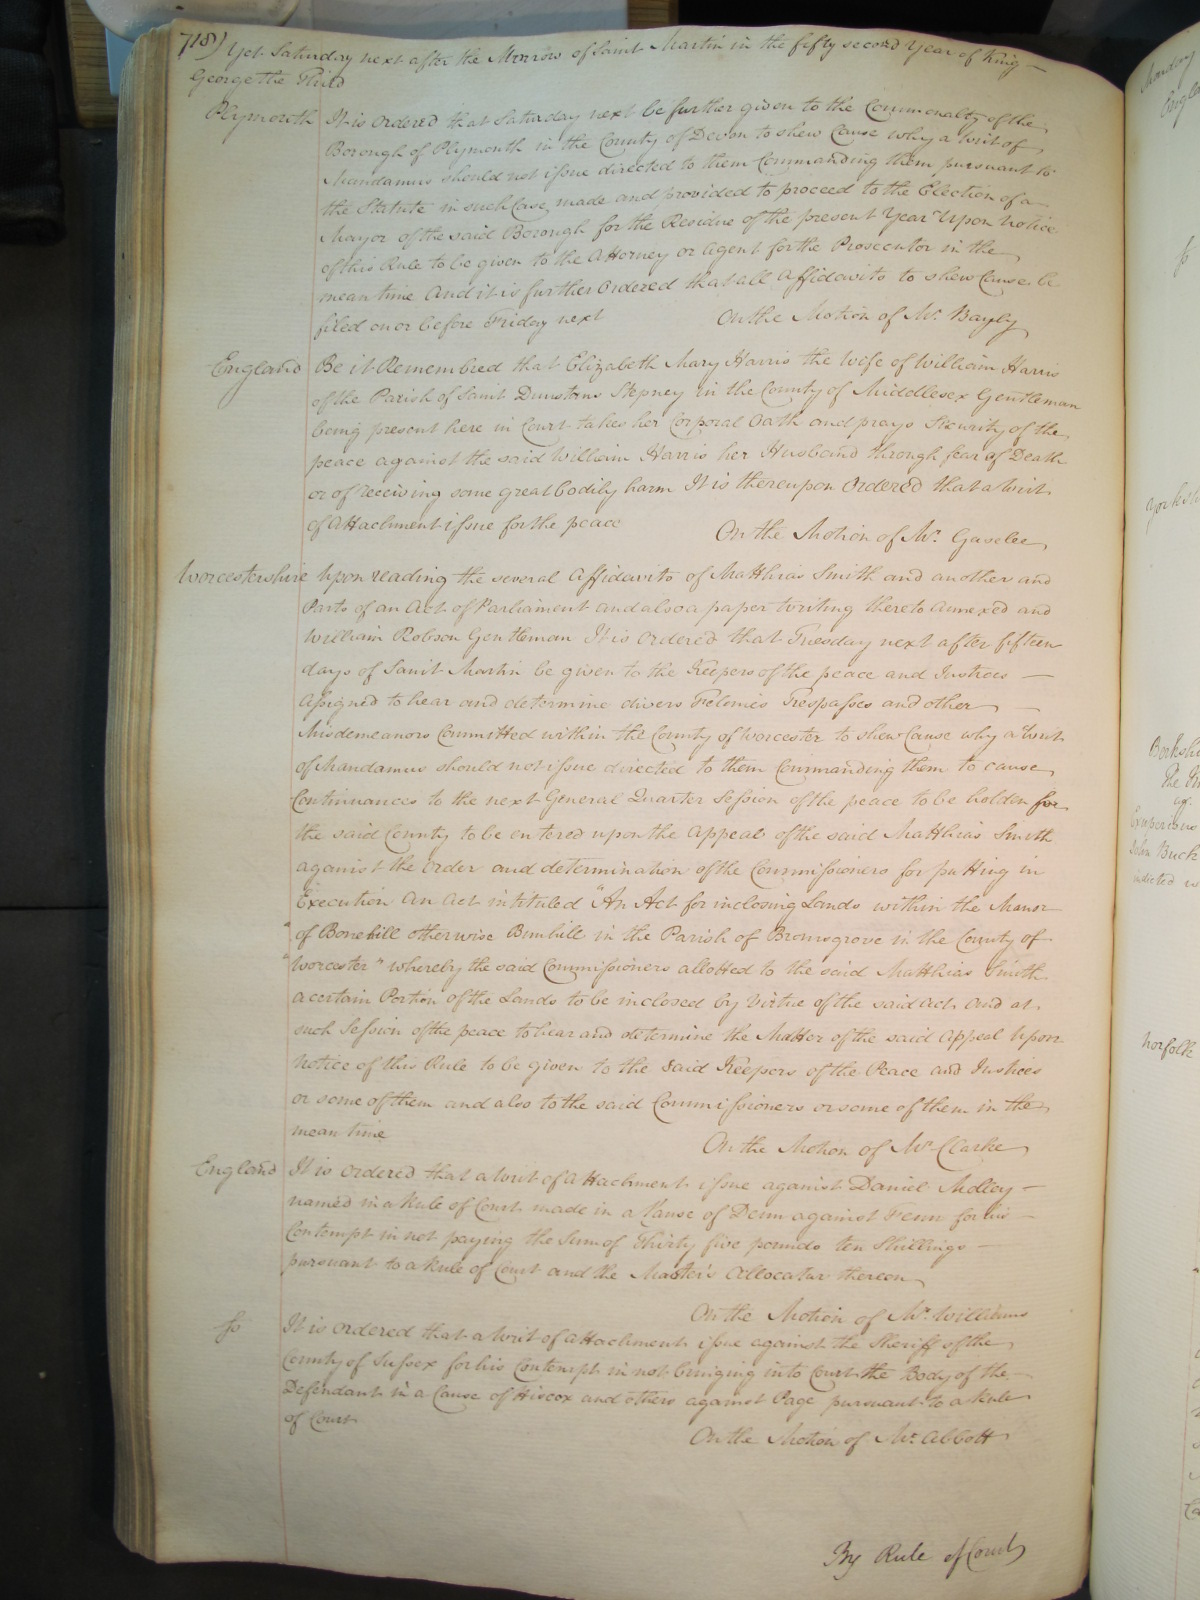 718) Yet Saturday next after the Morrow of Saint Martin in the fifty second Year of King
George the Third
Plymouth It is Ordered that Saturday next be further given to the Commonalty of the
Borough of Plymouth in the County of Devon to shew Cause why a Writ of
Mandamus should not issue directed to them Commanding them pursuant to
the Statute in such Case made and provided to proceed to the Election of a
Mayor of the said Borough for the Residue of the present Year Upon Notice
of this Rule to be given to the Attorney or Agent for the Prosecutor in the
mean time And it is further Ordered that all Affidavits to shew Cause be
filed on or before Friday next On the Motion of Mr. Bayly
England Be it Remembred that Elizabeth Mary Harris the Wife of William Harris
of the Parish of Saint Dunstans Stepney in the County of Middlesex Gentleman
being present here in Court takes her Corporal Oath and prays Security of the
peace against the said William Harris her Husband through fear of Death
or of receiving some great bodily harm It is thereupon Ordered that a Writ
of Attachment issue for the peace On the Motion of Mr. Gaselee
Worcestershire Upon reading the several Affidavits of Matthias Smith and another and
Parts of an Act of Parliament and also a paper Writing thereto annexed and
William Robson Gentleman It is Ordered that Tuesday next after fifteen
days of Saint Martin be given to the Keepers of the peace and Justices
Assigned to hear and determine divers Felonies Trespasses and other
Misdemeanors Committed within the County of Worcester to shew Cause why a Writ
of Mandamus should not issue directed to them Commanding them to cause
Continuances to the next General Quarter Session of the peace to be holden for
the said County to be entered upon the Appeal of the said Matthias Smith
against the Order and determination of the Commissioners for putting in
Execution An Act intituled "An Act for inclosing Lands within the Manor
" of Bonehill otherwise Bunhill in the Parish of Bromsgrove in the County of
" Worcester" whereby the said Commissioners allotted to the said Matthias Smith
a certain Portion of the Lands to be inclosed by virtue of the said Act And at
such Session of the peace to hear and determine the Matter of the said Appeal Upon
Notice of this Rule to be given to the said Keepers of the Peace and Justices
or some of them and also to the said Commissioners or some of them in the
mean time On the Motion of Mr. Clarke
England It is Ordered that a Writ of Attachment issue against Daniel
named in a Rule of Court made in a Cause of Denn against Fenn for his
Contempt in not paying the Sum of Thirty five pounds ten Shillings
pursuant to a Rule of Court and the Master's Allocatur thereon
On the Motion of Mr. Williams
So It is Ordered that a Writ of Attachment issue against the Sheriff of the
County of Sussex for his Contempt in not bringing into Court the Body of the
Defendant in a Cause of Hiscox and others against Page pursuant to a Rule
of Court
On the Motion of Mr. Abbott
By Rule of Court
Monday
So
Berkshi
Exuperius
John Buck
indicted
Norfolk